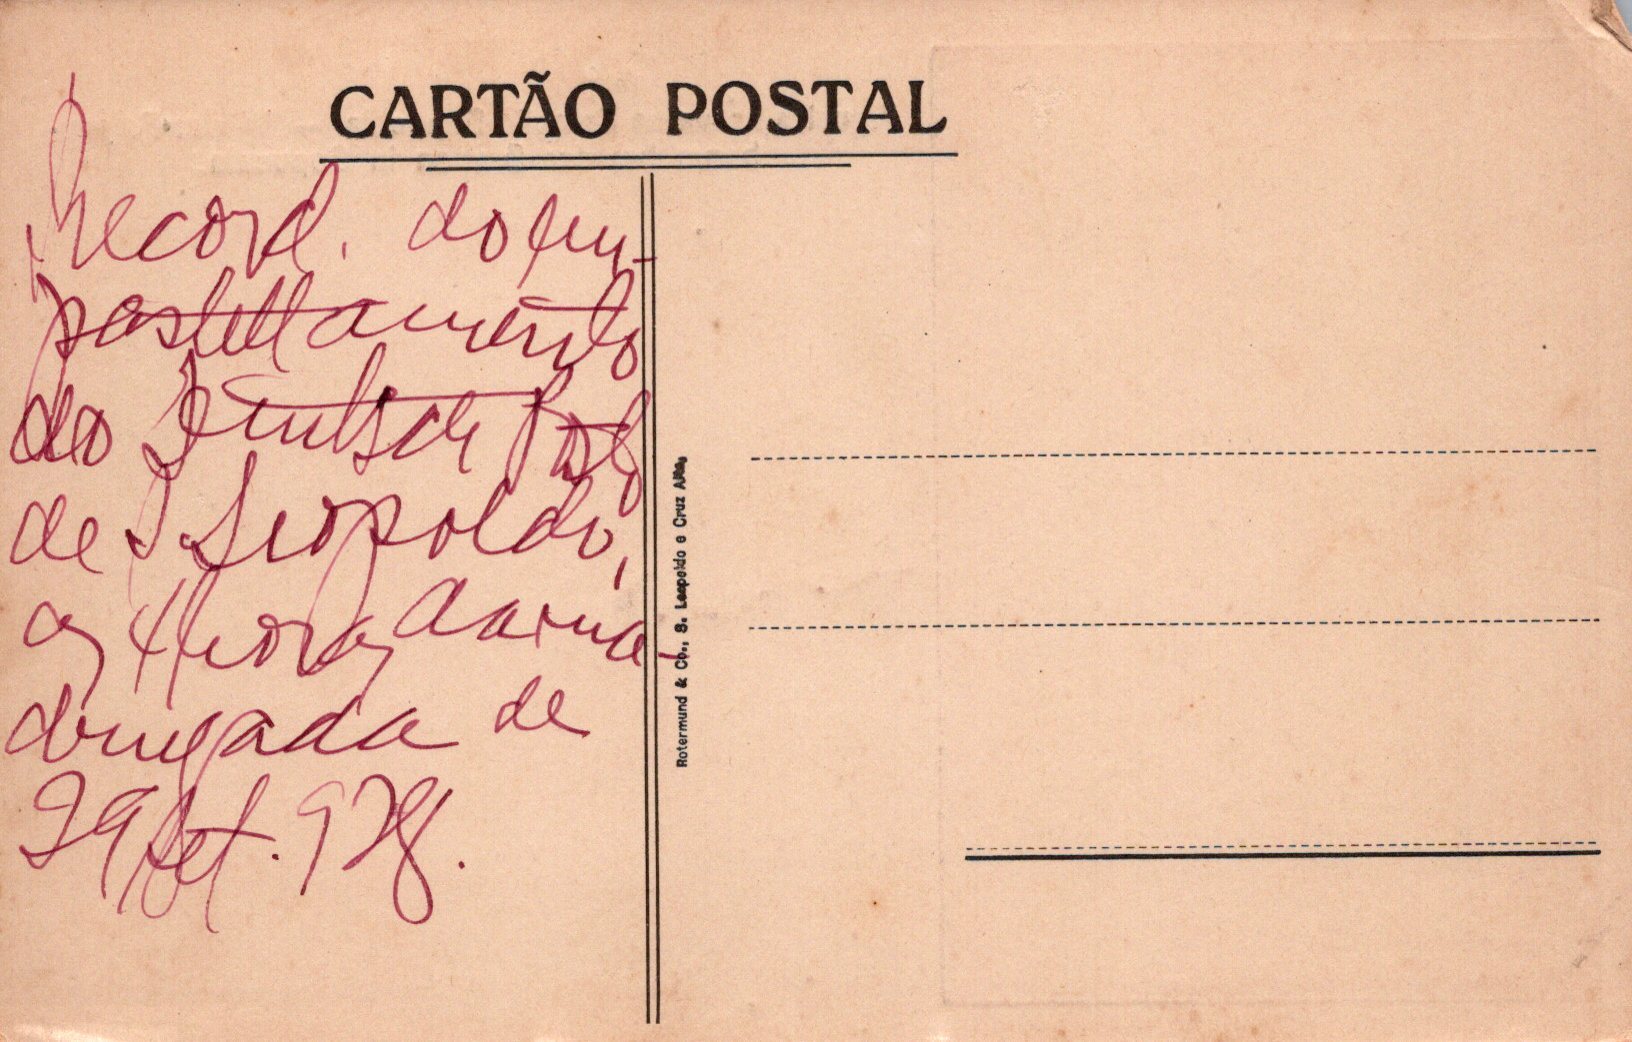 CARTÃO POSTAL
Record. do em-
pastellamento
do Deutsch Post,
de S. Leopoldo,
as horas da ma-
drugada de
29 set. 928.
Rotermund & Co., S. Leopoldo e Cruz Alta,